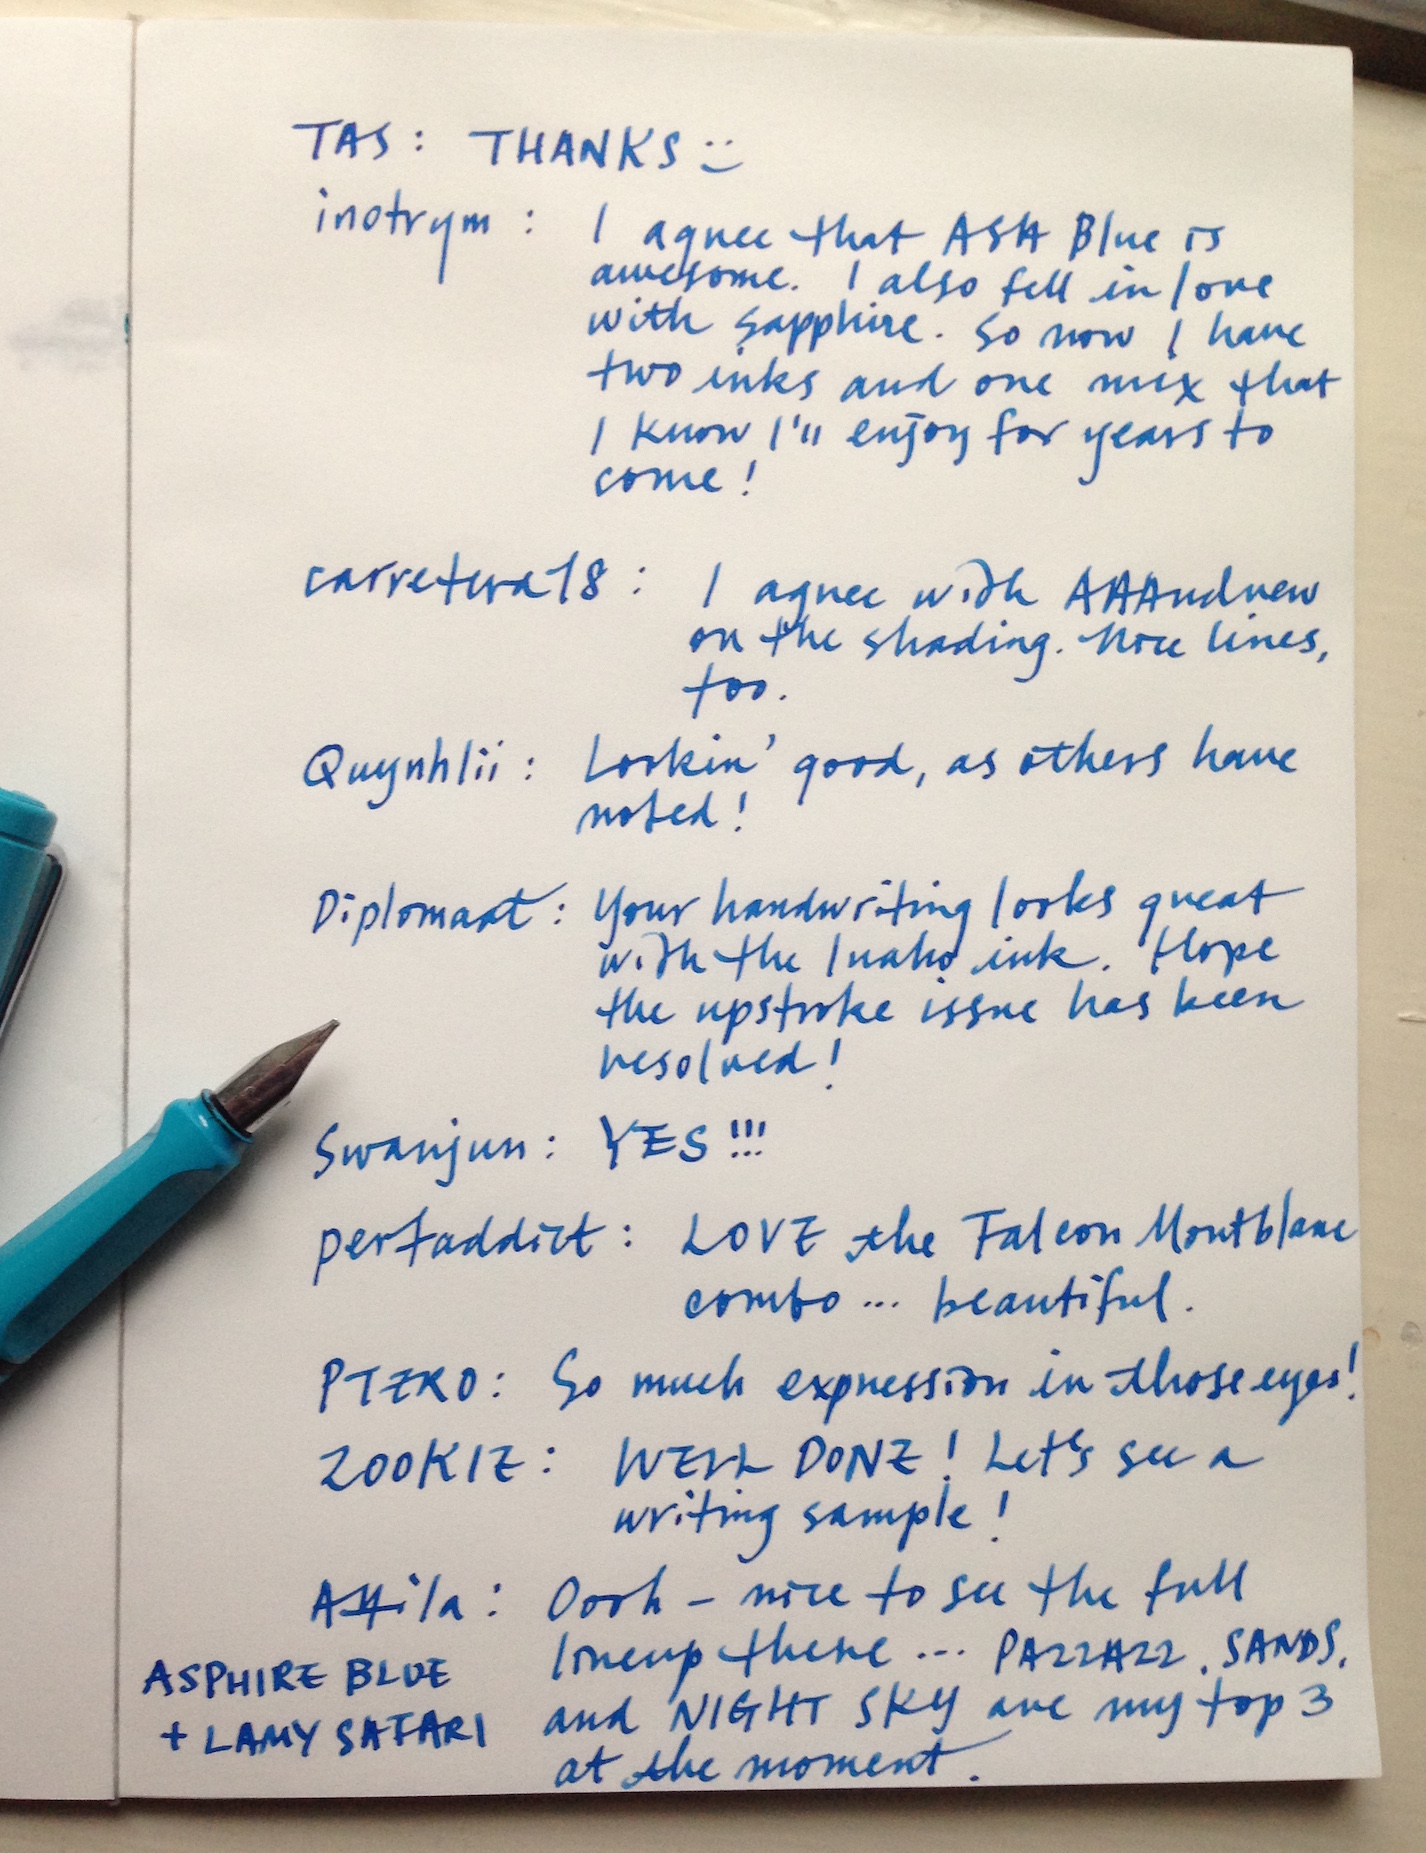 TAS: THANKS :)
inotrym: I agree that ASA Blue is
awesome. I also fell in love
with sapphire. So now I have
two inks and one mix that
I know I'll enjoy for years to
come!
carretera18: I agree with AAAndrew
on the shading. Nice lines,
too.
Quynhlii: Lookin' good, as others have
noted!
Diplomaat: Your handwriting looks great
with the Inaho ink. Hope
the upstroke issue has been
resolved!
Swanjun: YES!!!
perfaddict: LOVE the Falcon Montblanc
combo... beautiful.
PTERO: So much expression in those eyes!
ZOOKIE: WELL DONE! Let's see a
writing sample!
Attila: Oooh - nice to see the full
lineup there... PAZZAZZ, SANDS,
and NIGHT SKY are my top 3
at the moment.
ASPHIRE BLUE
+ LAMY SAFARI